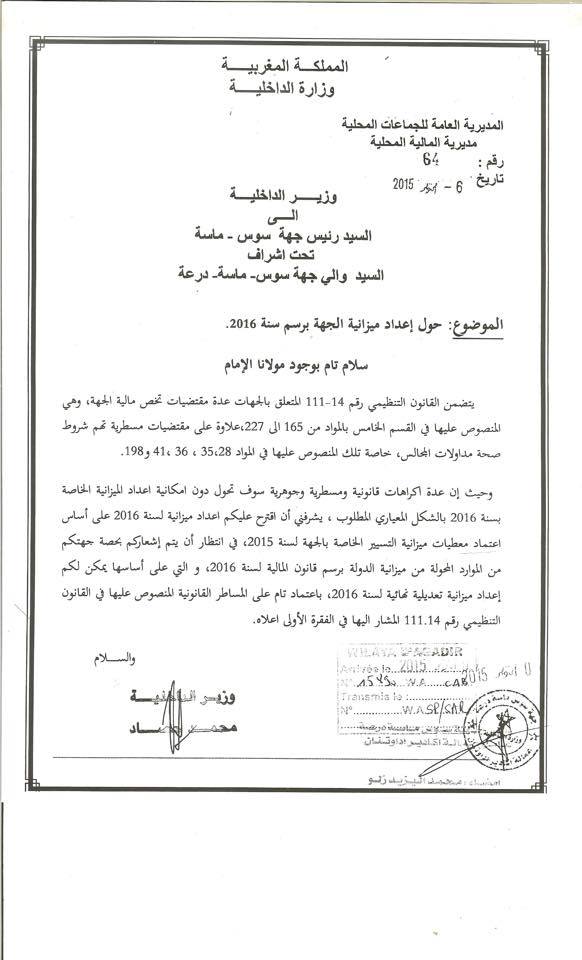 المملكة المغربية
وزارة الداخلية
المديرية العامة للجماعات المحلية
مديرية المالية المحلية
رقم : 64
تاريخ 6 - أكتوبر 2015
وزير الداخلية
الى
السيد رئيس جهة سوس - ماسة
تحت اشراف
السيد والي جهة سوس- ماسة- درعة
الموضوع: حول إعداد ميزانية الجهة برسم سنة 2016.
سلام تام بوجود مولانا الإمام
يتضمن القانون التنظيمي رقم 14-111 المتعلق بالجهات عدة مقتضيات تخص مالية الجهة، وهي
المنصوص عليها في القسم الخامس بالمواد من 165 الى 227،علاوة على مقتضيات مسطرية تهم شروط
صحة مداولات المجالس، خاصة تلك المنصوص عليها في المواد 35،28 ، 36 ،41 و198.
وحيث إن عدة اكراهات قانونية ومسطرية وجوهرية سوف تحول دون امكانية اعداد الميزانية الخاصة
بسنة 2016 بالشكل المعياري المطلوب ، يشرفني أن اقترح عليكم اعداد ميزانية لسنة 2016 على أساس
اعتماد معطيات ميزانية التسيير الخاصة بالجهة لسنة 2015، في انتظار أن يتم إشعاركم بحصة جهتكم
من الموارد المحولة من ميزانية الدولة برسم قانون المالية لسنة 2016، و التي على أساسها يمكن لكم
إعداد ميزانية تعديلية نهائية لسنة 2016، باعتماد تام على المساطر القانونية المنصوص عليها في القانون
التنظيمي رقم 111.14 المشار اليها في الفقرة الأولى اعلاه.
والسلام
وزير الداخلية
محمد حصاد
WILAYA D'AGADIR
Arrivée le 2015
N° 15490 W.A CAB
Transmis le :
N° W.A SP/SAR
امضاء : محمد اليزيد زلو